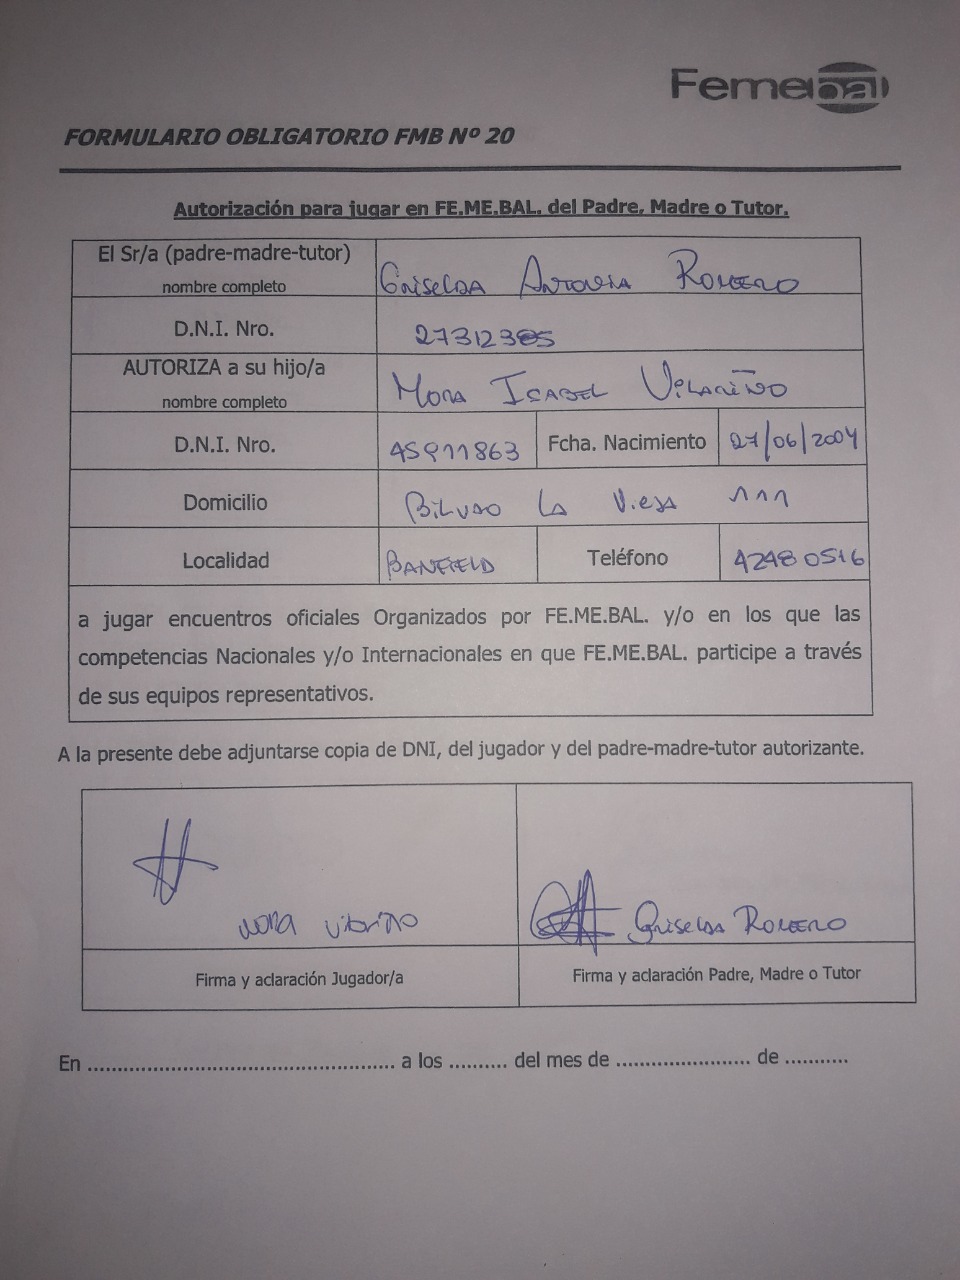 Femebal
FORMULARIO OBLIGATORIO FMB Nº 20
Autorización para jugar en FE.ME.BAL. del Padre, Madre o Tutor.
El Sr/a (padre-madre-tutor)
nombre completo
Griselda Antonia Romero
D.N.I. Nro.
27312385
AUTORIZA a su hijo/a
nombre completo
Mora Isabel Vilariño
D.N.I. Nro.
45911863
Fcha. Nacimiento
27/06/2004
Domicilio
Bilvao La Vieja 111
Localidad
Banfield
Teléfono
42480516
a jugar encuentros oficiales Organizados por FE.ME.BAL. y/o en los que las
competencias Nacionales y/o Internacionales en que FE.ME.BAL. participe a través
de sus equipos representativos.
A la presente debe adjuntarse copia de DNI, del jugador y del padre-madre-tutor autorizante.
Mora
Griselda Romero
Firma y aclaración Jugador/a
Firma y aclaración Padre, Madre o Tutor
En .................................................... a los .......... del mes de ....................... de ...........